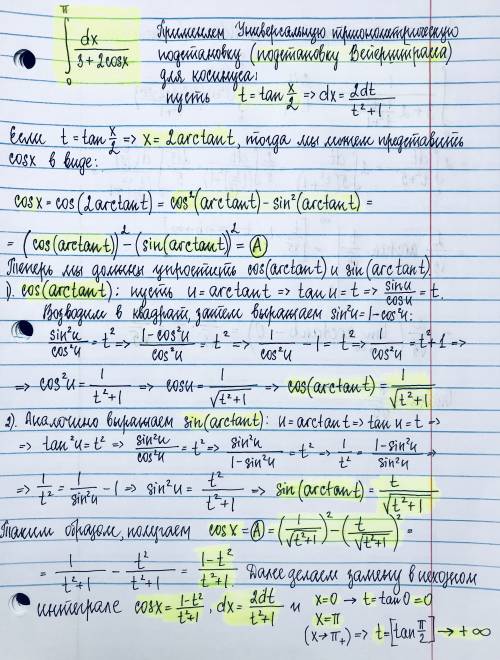 ∫₀^π dx/(3+2cosx) Применяем Универсальную тригонометрическую
подстановку (подстановку Вейерштрасса)
для косинуса:
пусть t = tan x/2 => dx = 2dt/(t²+1)
Если t = tan x/2 => x = 2arctan t, тогда мы можем представить
cosx в виде:
cosx = cos(2arctan t) = cos²(arctan t) - sin²(arctan t) =
= (cos(arctan t))² - (sin(arctan t))² = Ⓐ
Теперь мы должны упростить cos(arctan t) и sin(arctan t).
1). cos(arctan t): пусть u = arctan t => tan u = t => sin u/cos u = t.
Возводим в квадрат, затем выражаем sin²u = 1-cos²u:
sin²u/cos²u = t² => (1-cos²u)/cos²u = t² => 1/cos²u - 1 = t² => 1/cos²u = t²+1 =>
=> cos²u = 1/(t²+1) => cos u = 1/√(t²+1) => cos(arctan t) = 1/√(t²+1)
2). Аналогично выражаем sin(arctan t): u = arctan t => tan u = t =>
=> tan²u = t² => sin²u/cos²u = t² => sin²u/(1-sin²u) = t² => 1/t² = (1-sin²u)/sin²u =>
=> 1/t² = 1/sin²u - 1 => sin²u = t²/(t²+1) => sin(arctan t) = t/√(t²+1)
Таким образом, получаем cosx = Ⓐ = (1/√(t²+1))² - (t/√(t²+1))² =
= 1/(t²+1) - t²/(t²+1) = (1-t²)/(t²+1). Далее делаем замену в исходном
интеграле cosx = (1-t²)/(t²+1), dx = 2dt/(t²+1) и x=0 → t = tan 0 = 0
x=π
(x→π₊) => t = [tan π/2] → +∞